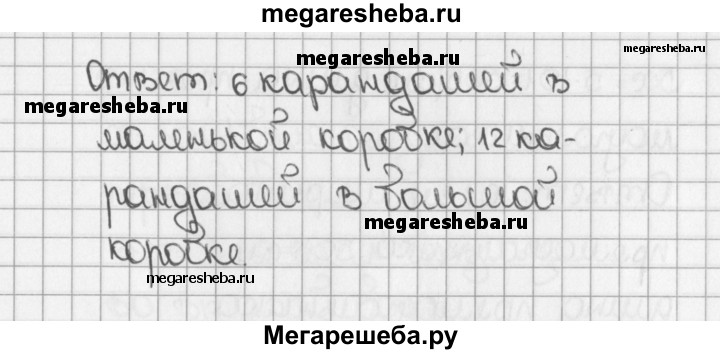 megaresheba.ru
megaresheba.ru
megaresheba.ru
Ответ: 6 карандашей в
megaresheba.ru
маленькой коробке; 12 ка-
рандашей в большой
megaresheba.ru
коробке.
megaresheba.ru
Мегарешеба.ру